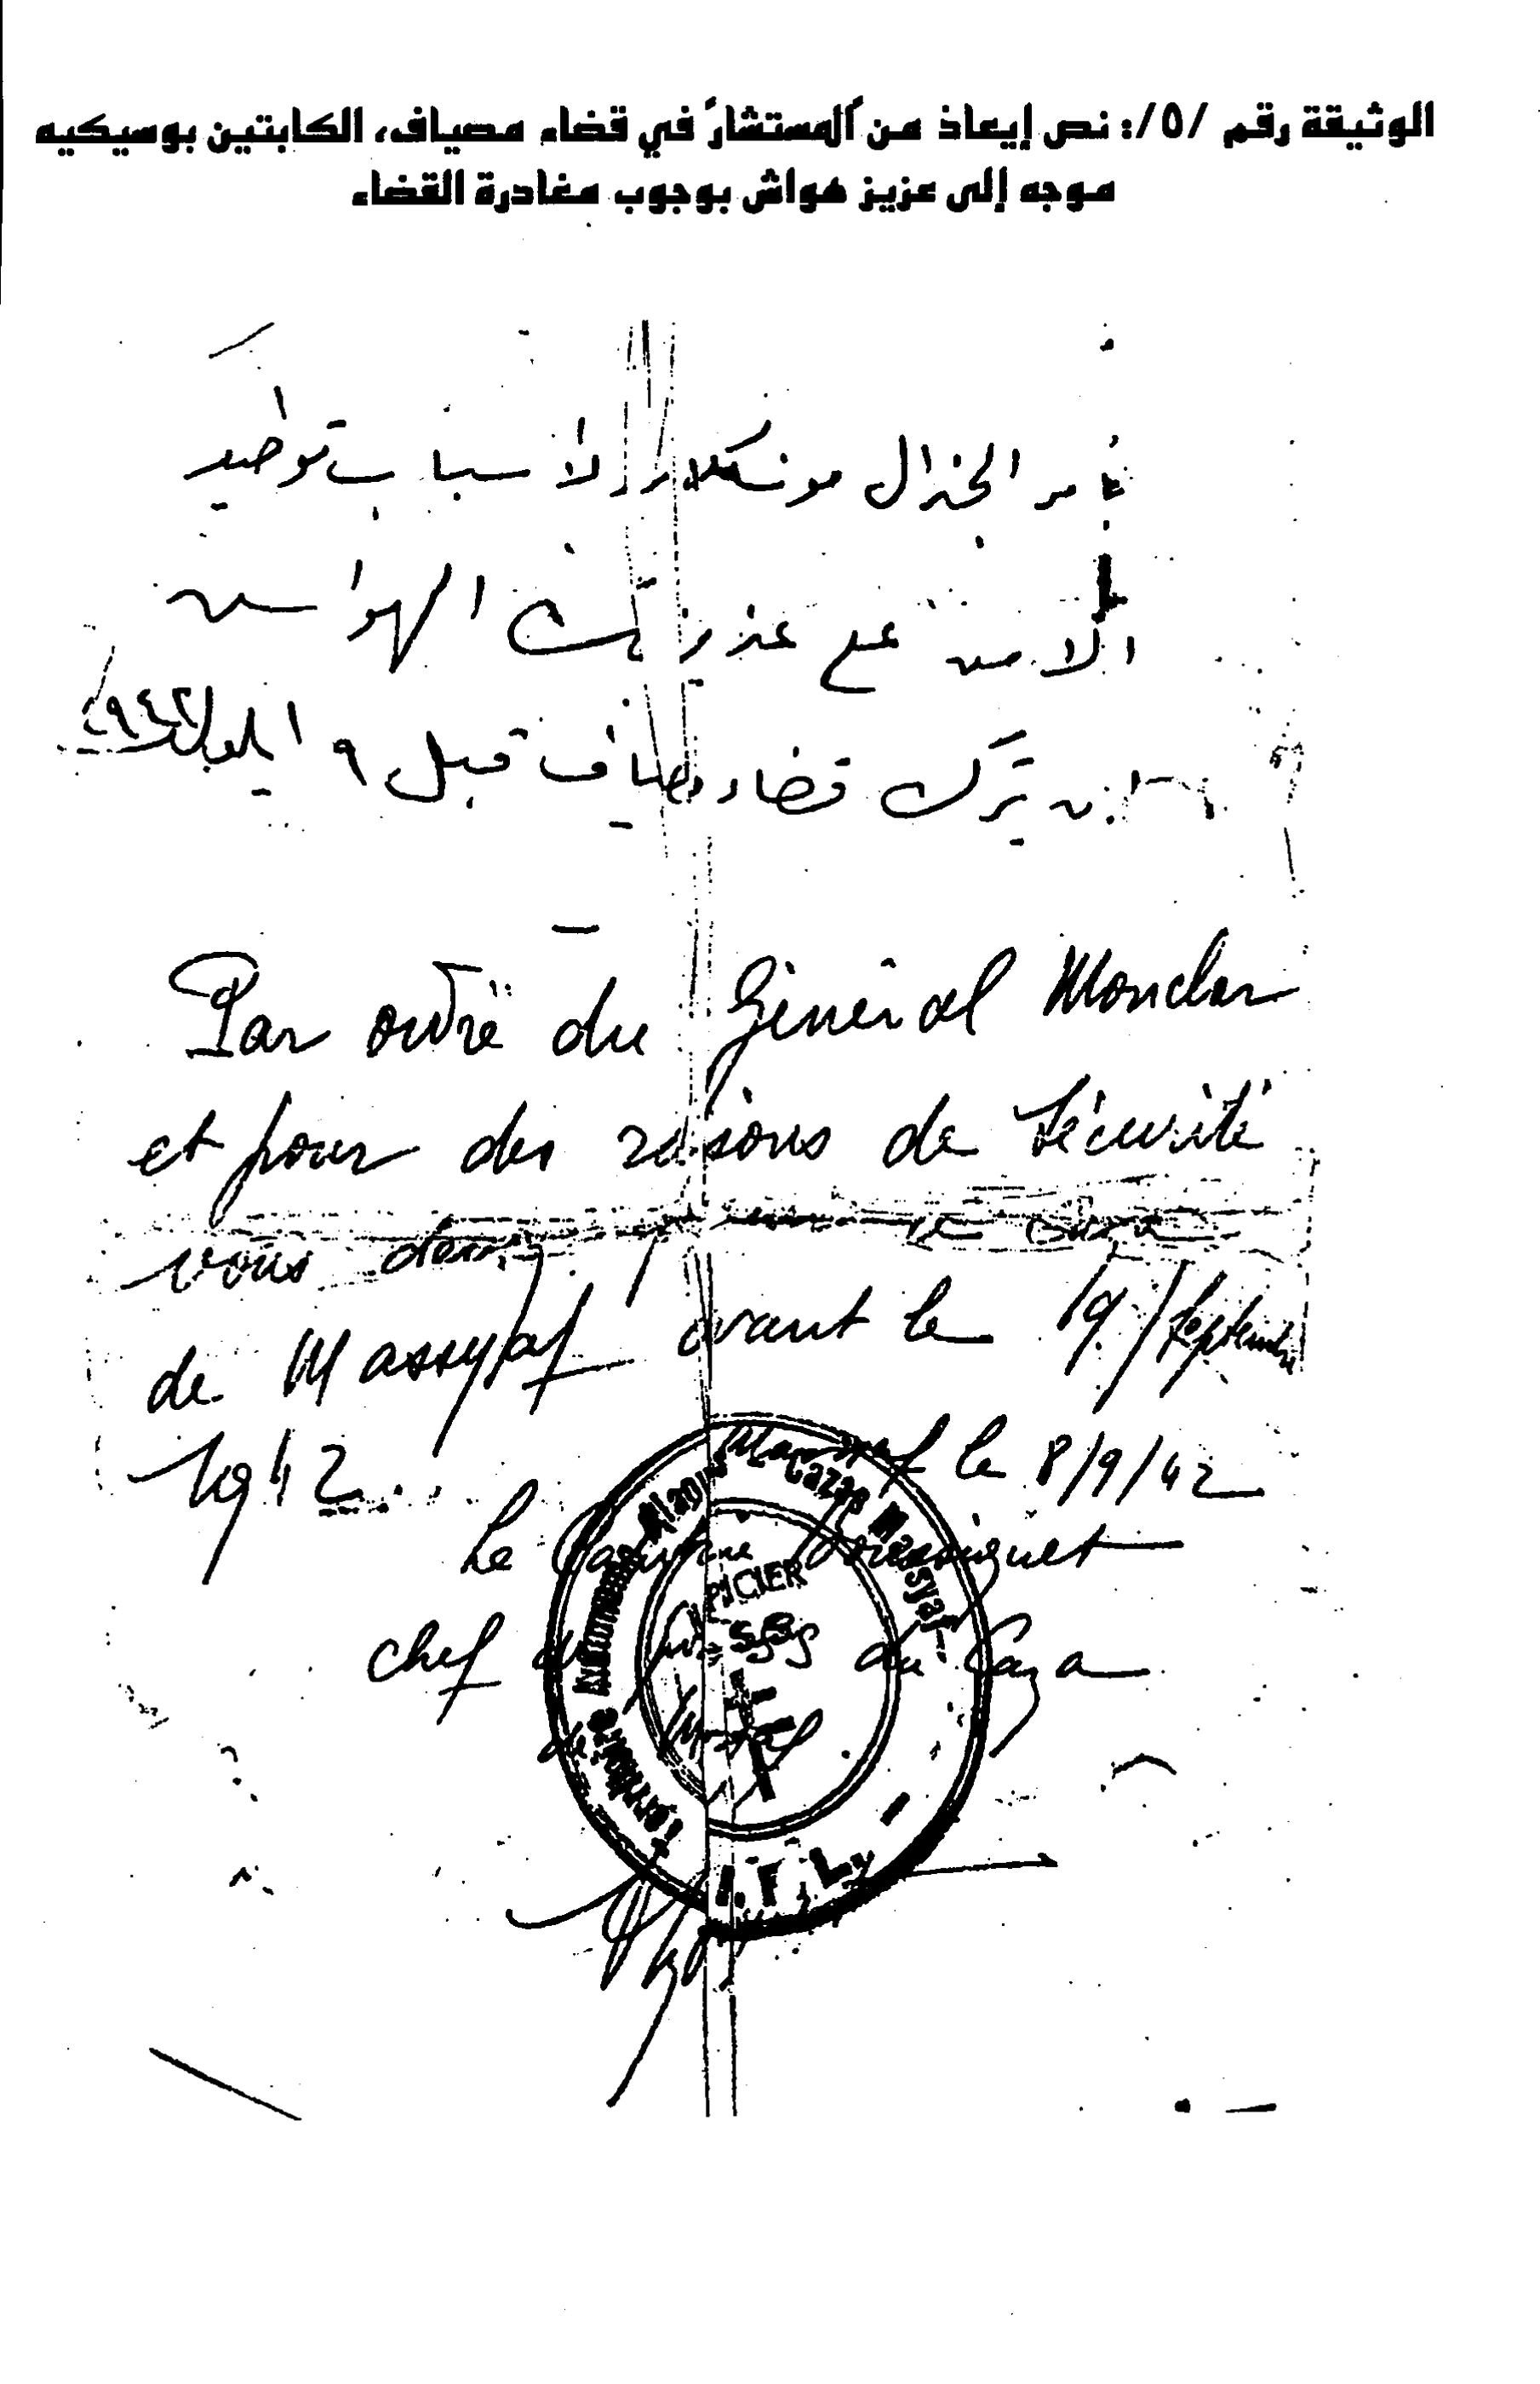 الوثيقة رقم /٥/: نص إيعاذ من "المستشار" في قضاء مصياف، الكابتين بوسيكيه
موجه إلى عزيز هواش بوجوب مغادرة القضاء
بأمر الجنرال مونكلار لأسباب توطيد
الامن على عزيز بك الهواش
ان يترك قضاء مصياف قبل ٩ ايلول ٩٤٢
Par ordre du Général Monclar
et pour des raisons de sécurité
vous devez
de Massyaf avant le 19/Septembre
1942.
Massyaf le 8/9/42
Le Capitaine
chef du poste SS du Caza
de Massyaf
Territoire Alaouites Cazas Massyaf